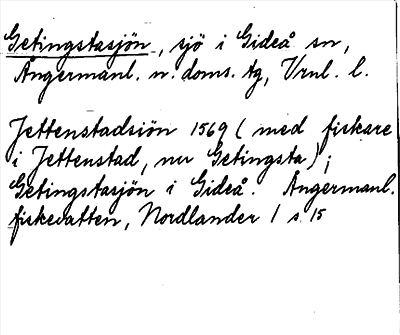 Getingstasjön, sjö i Gideå sn,
Ångermanl. n. doms. tg, Vrnl. l.
Jettenstadsiön 1569 (med fiskare
i Jettenstad, nu Getingsta);
Getingstasjön i Gideå. Ångermanl.
fiskevatten, Nordlander 1 s. 15